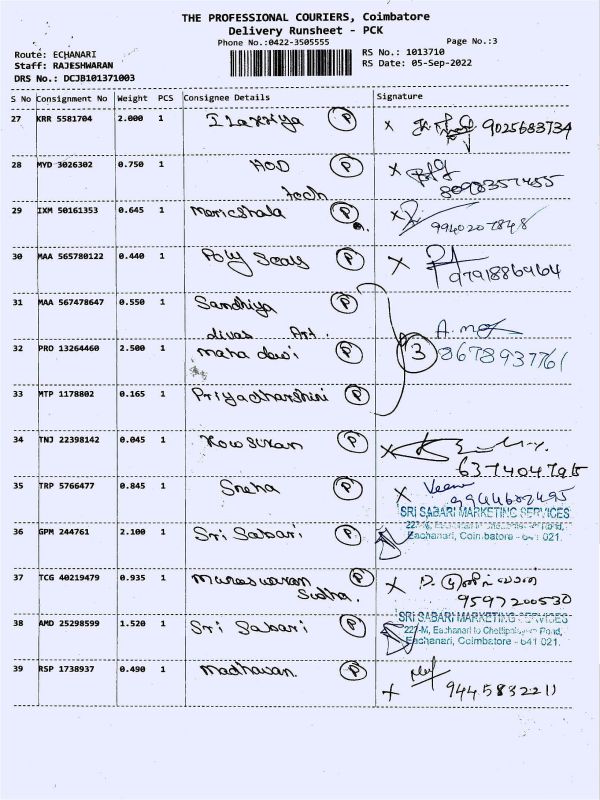 THE PROFESSIONAL COURIERS, Coimbatore
Delivery Runsheet - PCK
Phone No.:0422-3505555
Page No.:3
Route: ECHANARI
RS No.: 1013710
Staff: RAJESHWARAN
RS Date: 05-Sep-2022
DRS No.: DCJB101371003
S No Consignment No Weight PCS Consignee Details Signature
27 KRR 5581704 2.000 1 Ilakkiya P X 9025683734
28 MYD 3026302 0.750 1 AOD P X
tech 8098357455
29 IXM 50161353 0.645 1 P X
9940207848
30 MAA 565780122 0.440 1 Poly Seals P X
9791886464
31 MAA 567478647 0.550 1 Sandhiya P
divas Art.
32 PRO 13264460 2.500 1 maha devi P 3 8678937761
33 MTP 1178802 0.165 1 Priyadharshini P
34 TNJ 22398142 0.045 1 Kowsikan P X
637404795
35 TRP 5766477 0.845 1 Sneha P X Veena
SRI SABARI MARKETING SERVICES
36 GPM 244761 2.100 1 Sri Sabari P
Eachanari, Coimbatore - 641 021.
37 TCG 40219479 0.935 1 Muneswaran P X
Sudha. 9597200530
SRI SABARI MARKETING SERVICES
38 AMD 25298599 1.520 1 Sri Sabari P 227-M, Eachanari to Chettipalayam Road,
Eachanari, Coimbatore - 641 021.
39 RSP 1738937 0.490 1 Madhavan P
X 9445832211